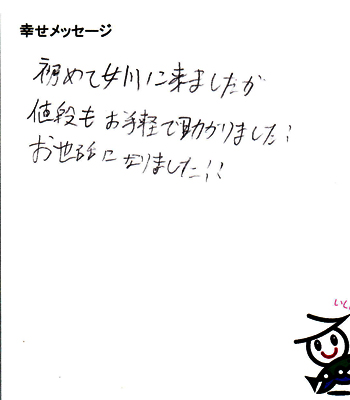 幸せメッセージ
初めて女川に来ましたが
値段もお手軽で助かりました!
お世話になりました!!